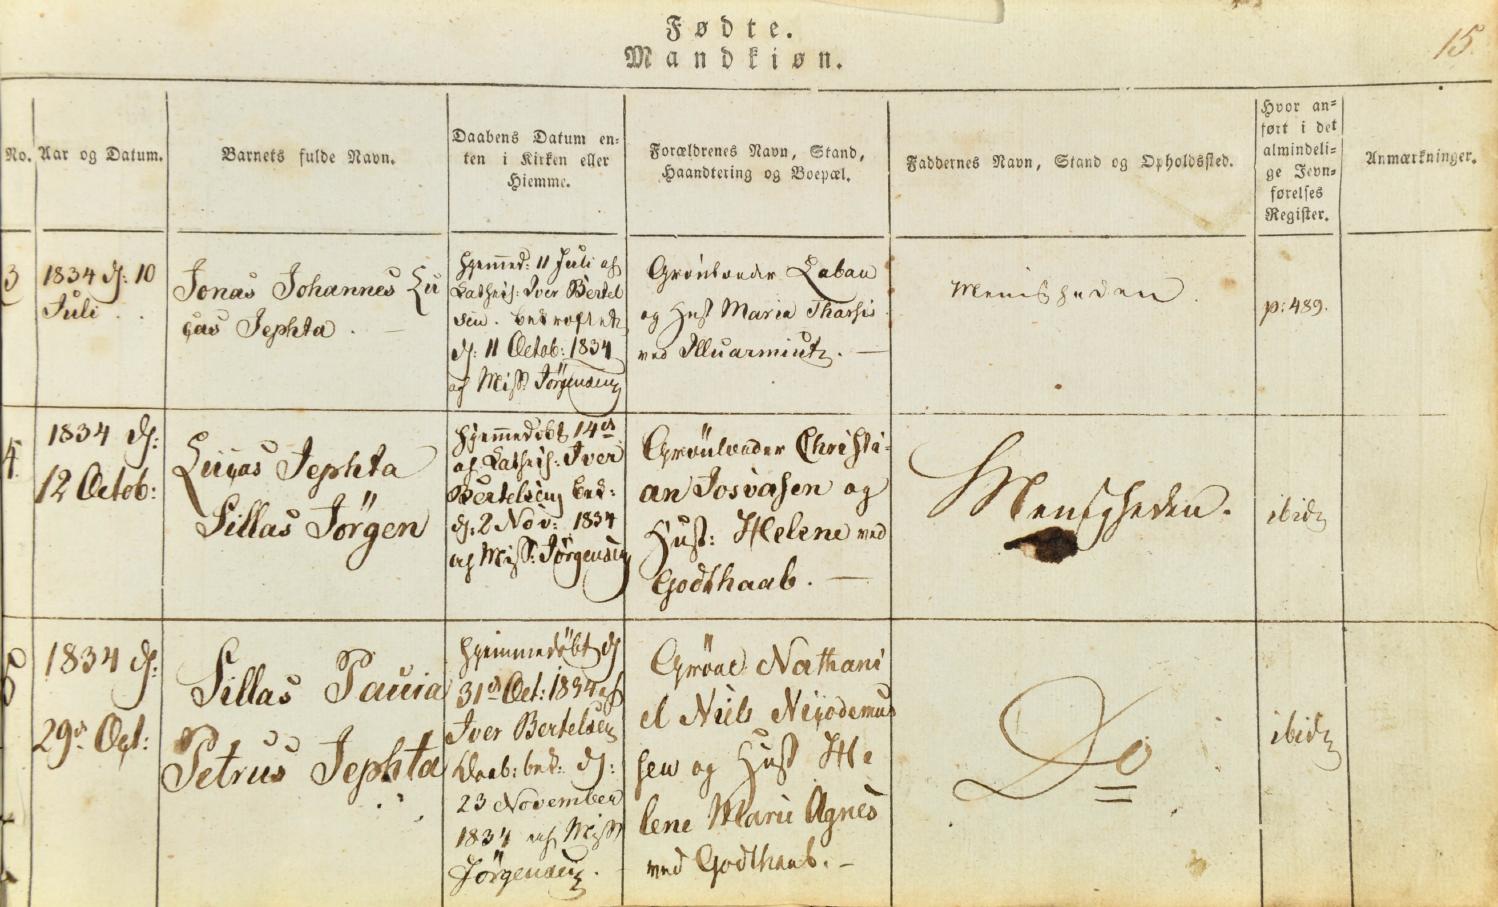 Fødte.
Mandkiøn.
15.
No.
Aar og Datum.
Barnets fulde Navn.
Daabens Datum en=
ten i Kirken eller
Hiemme.
Forældrenes Navn, Stand,
Haandtering og Boepæl.
Faddernes Navn, Stand og Opholdssted.
Hvor an=
ført i det
almindeli=
ge Jevn=
førelses
Register.
Anmærkninger.
3
1834 d: 10
Juli
Jonas Johannes Lu
cas Jephta.
Hjemmed: 11 Juli af
Cathech: Iver Bertel
sen. bekræftet
d: 11 Octob: 1834
af Miss: Jörgensen
Grönlænder Laban
og Hust Maria Tharsis
ved Illuarmiut.
Menigheden.
p: 489.
4.
1834 d:
12 Octob:
Lucas Jephta
Sillas Jörgen
Hjemmedöbt 14de
af Cathech: Iver
Bertelsen bek:
d: 2 Nov: 1834
af Miss: Jörgensen
Grönlænder Christi-
an Josvasen og
Hust: Helene ved
Godthaab.
Menigheden.
ibid
5
1834 d:
29de Oct:
Sillas Pavia
Petrus Jephta
Hjemmedöbt d
31de Oct: 1834 af
Iver Bertelsen
Daab: bek: d:
23 November
1834 af Miss
Jörgensen.
Grönl Nathani
el Niels Nicodemus
sen og Hust He
lene Marie Agnes
ved Godthaab.
Do
ibid